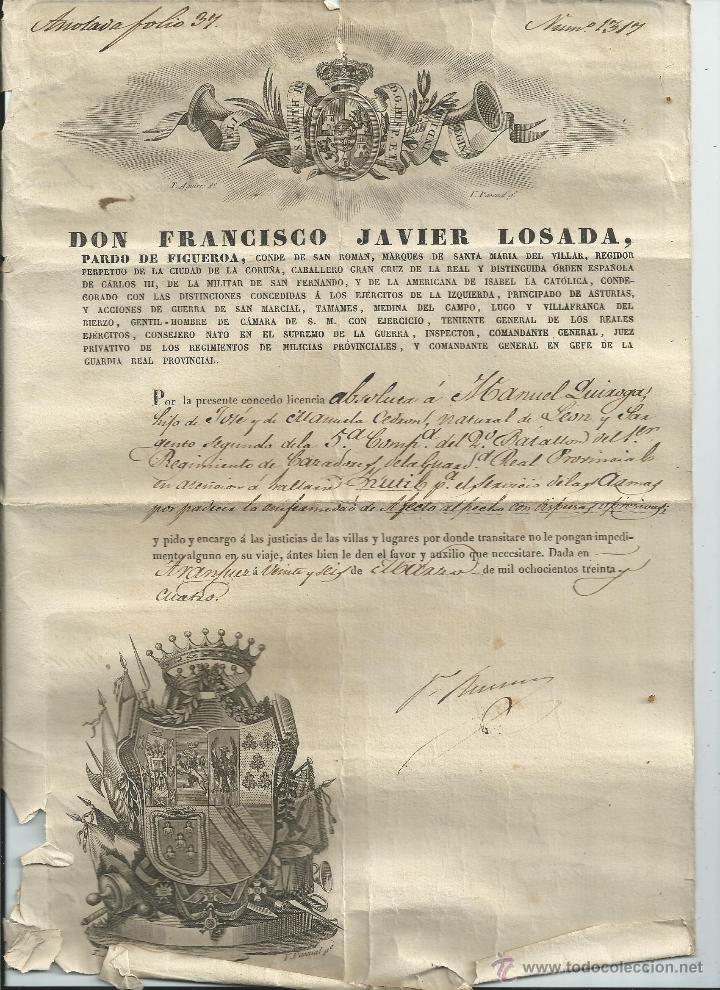 Anotada folio 37.
Num.º 1317
ELI
SABETH II.
D. G. HISP. ET
IND
REGINA
V. Pascual gº.
DON FRANCISCO JAVIER LOSADA,
PARDO DE FIGUEROA, CONDE DE SAN ROMAN, MARQUES DE SANTA MARIA DEL VILLAR, REGIDOR
PERPETUO DE LA CIUDAD DE LA CORUÑA, CABALLERO GRAN CRUZ DE LA REAL Y DISTINGUIDA ÓRDEN ESPAÑOLA
DE CÁRLOS III, DE LA MILITAR DE SAN FERNANDO, Y DE LA AMERICANA DE ISABEL LA CATÓLICA, CONDE-
CORADO CON LAS DISTINCIONES CONCEDIDAS Á LOS EJÉRCITOS DE LA IZQUIERDA, PRINCIPADO DE ASTURIAS,
Y ACCIONES DE GUERRA DE SAN MARCIAL, TAMAMES, MEDINA DEL CAMPO, LUGO Y VILLAFRANCA DEL
BIERZO, GENTIL-HOMBRE DE CÁMARA DE S. M. CON EJERCICIO, TENIENTE GENERAL DE LOS REALES
EJÉRCITOS, CONSEJERO NATO EN EL SUPREMO DE LA GUERRA, INSPECTOR, COMANDANTE GENERAL, JUEZ
PRIVATIVO DE LOS REGIMIENTOS DE MILICIAS PROVINCIALES, Y COMANDANTE GENERAL EN GEFE DE LA
GUARDIA REAL PROVINCIAL.
Por la presente concedo licencia absoluta á Manuel Quiroga,
hijo de José y de Manuela Cedron, natural de Leon y Sar
gento segundo de la 5.ª Comp.ª del 2.º Batallon del 1.er
Regimiento de Cazadores de la Guard.ª Real Provincial
en atencion á hallarse inutil p.ª el servicio de las Armas
por padecer la enfermedad de Afecto al pecho con
y pido y encargo á las justicias de las villas y lugares por donde transitare no le pongan impedi-
mento alguno en su viaje, ántes bien le den el favor y auxilio que necesitare. Dada en
Aranjuez á Veinte y seis de Marzo de mil ochocientos treinta y
cuatro.
V. Pascual gº.
www.todocoleccion.net